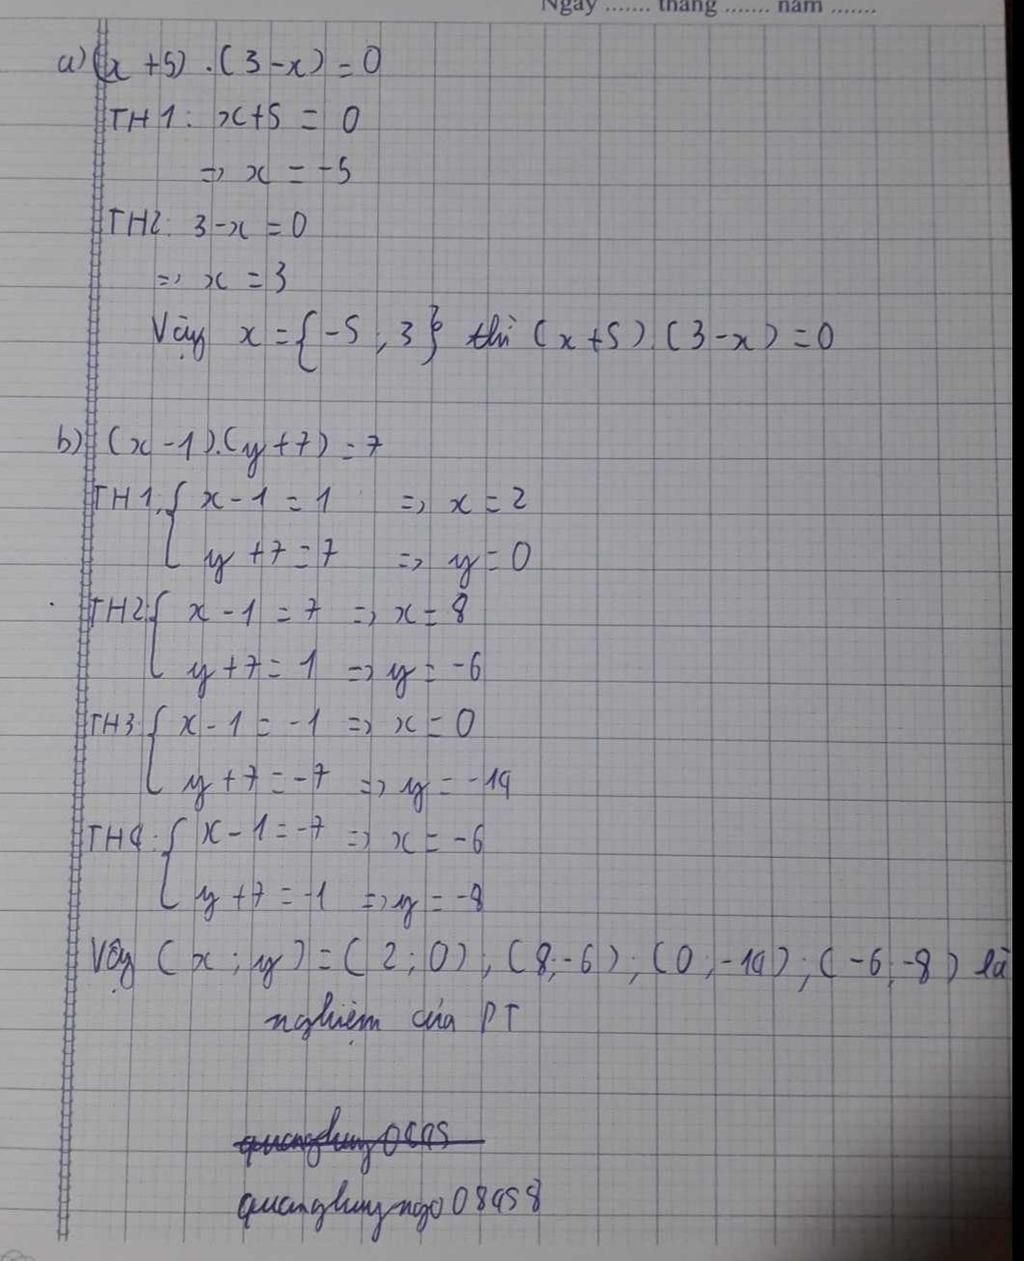 Ngày ....... tháng ....... năm .......
a) (x + 5) . (3 - x) = 0
TH1: x + 5 = 0
=> x = -5
TH2: 3 - x = 0
=> x = 3
Vậy x = {-5 ; 3} thì (x + 5) . (3 - x) = 0
b) (x - 1).(y + 7) = 7
TH1: { x - 1 = 1 => x = 2
y + 7 = 7 => y = 0
TH2: { x - 1 = 7 => x = 8
y + 7 = 1 => y = -6
TH3: { x - 1 = -1 => x = 0
y + 7 = -7 => y = -14
TH4: { x - 1 = -7 => x = -6
y + 7 = -1 => y = -8
Vậy (x ; y) = (2 ; 0) ; (8 ; -6) ; (0 ; -14) ; (-6 ; -8) là
nghiệm của PT